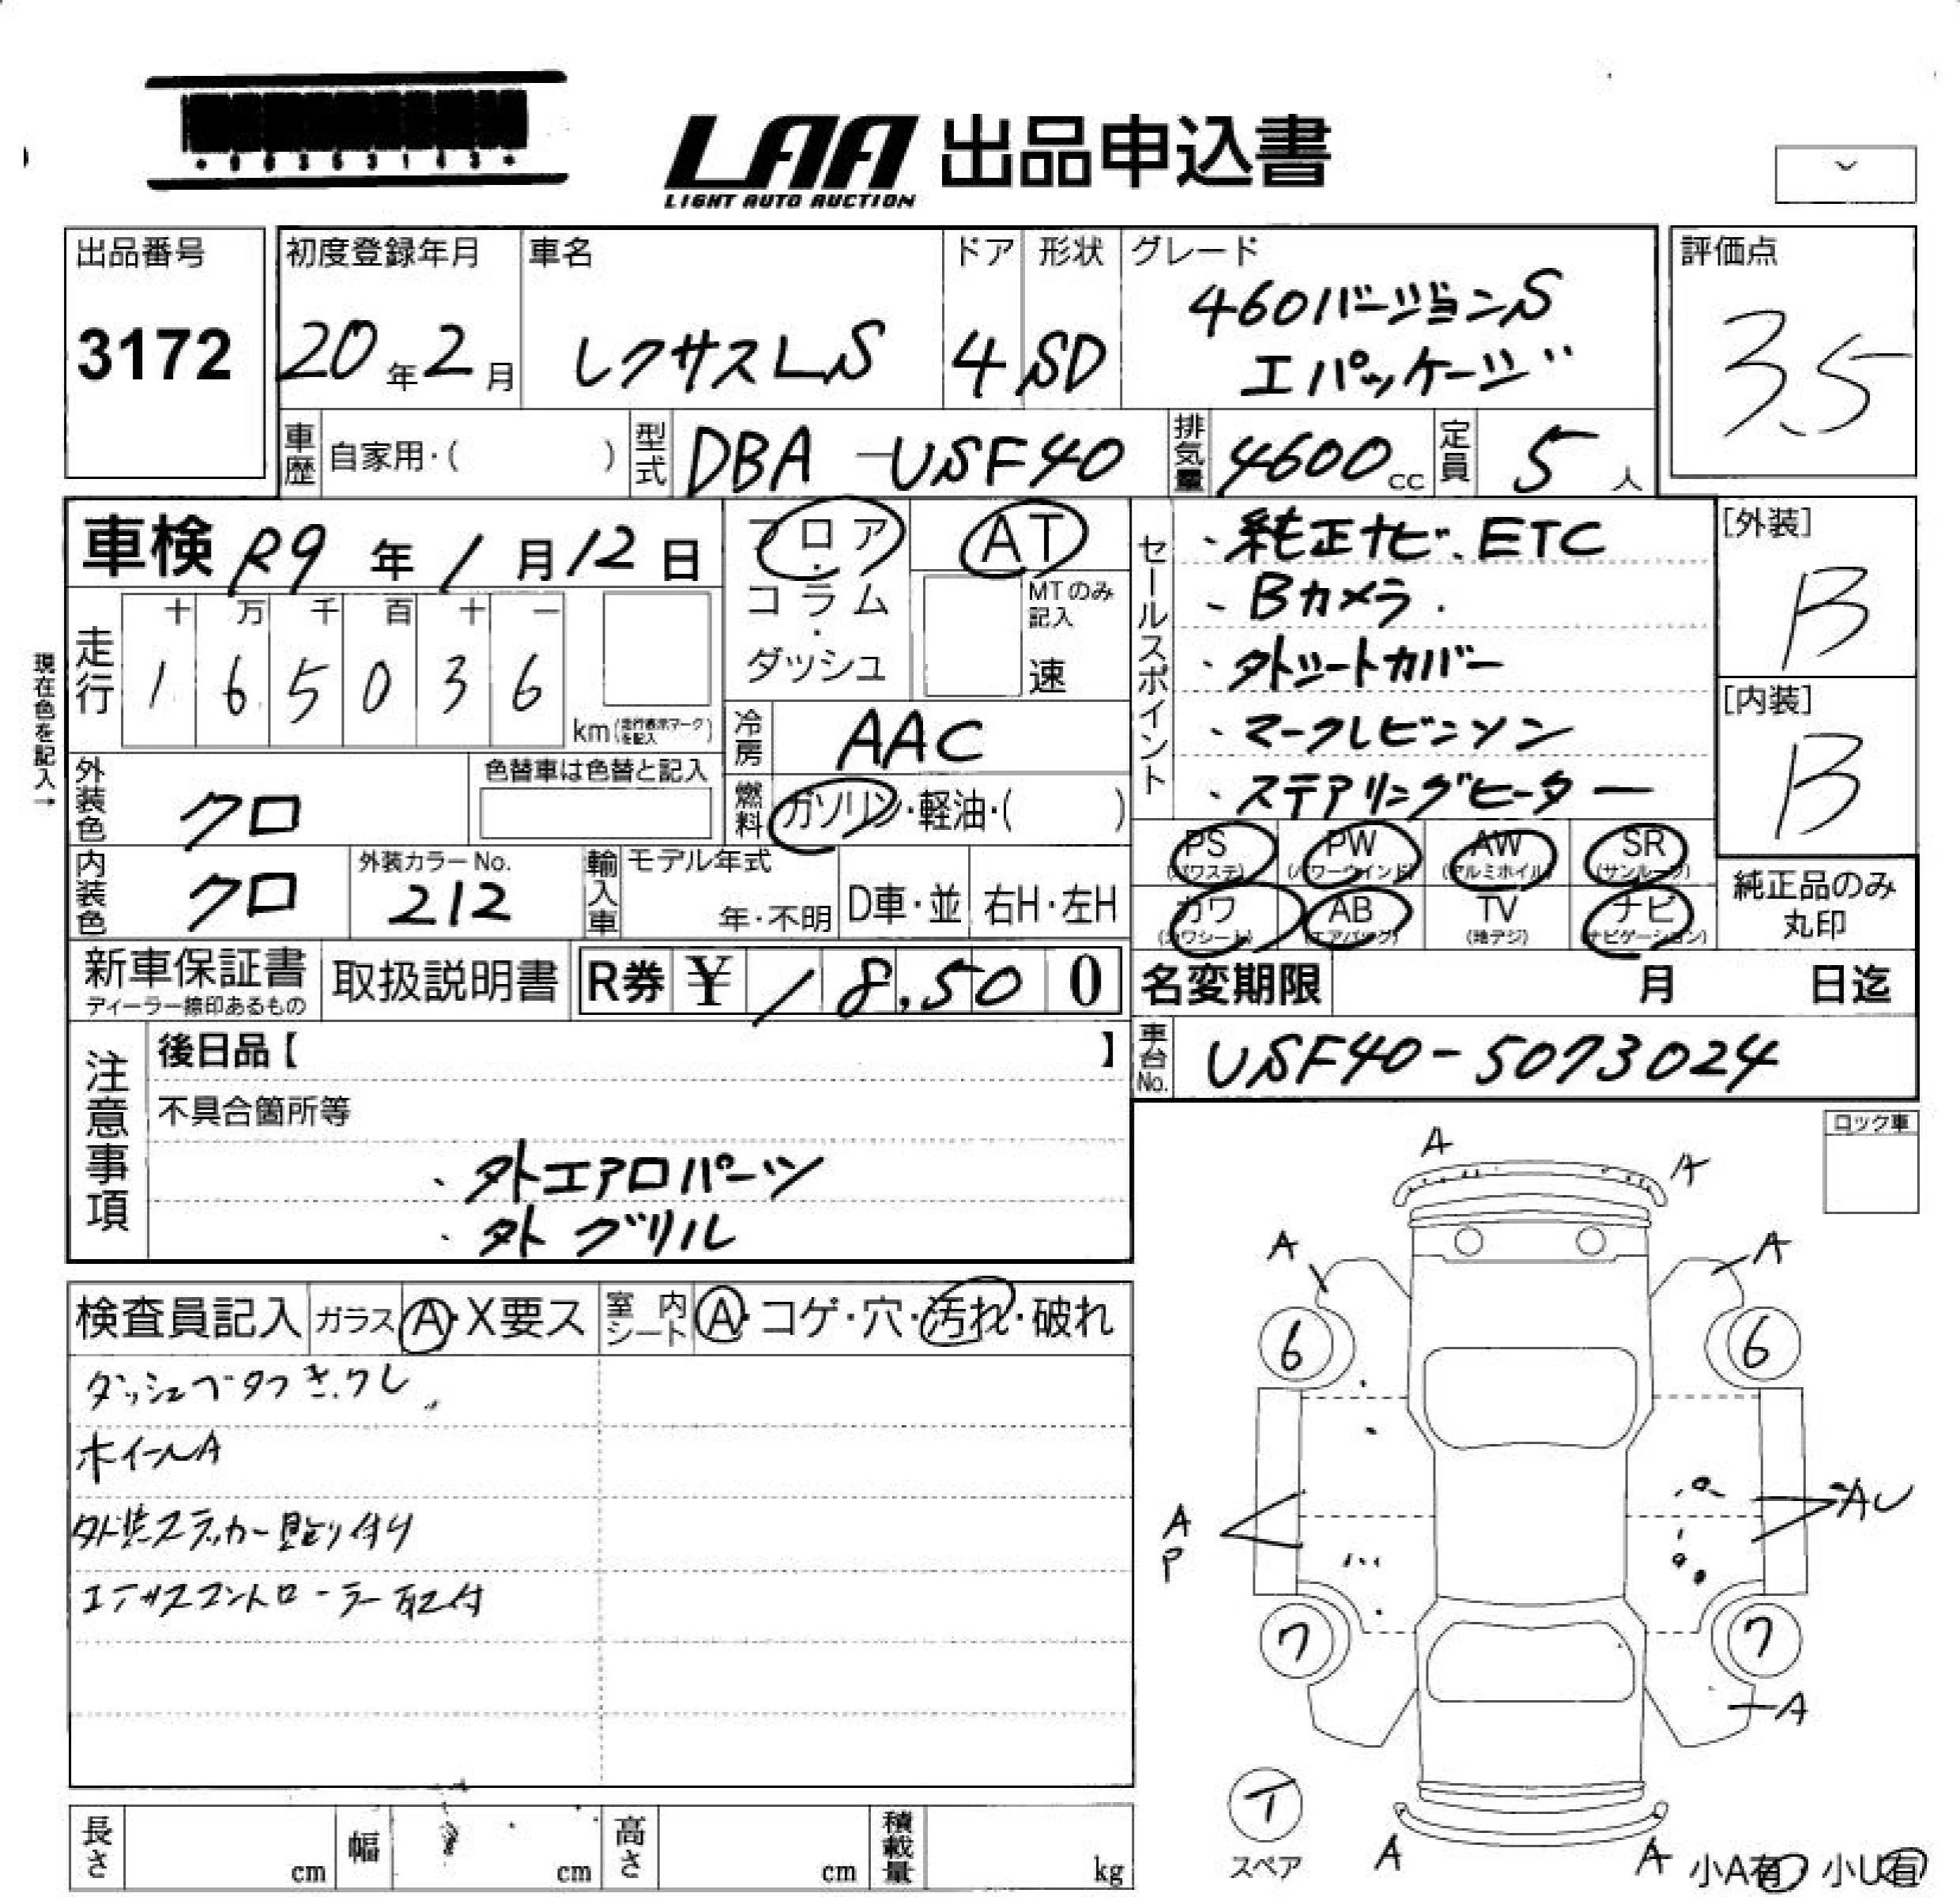 LAA 出品申込書
LIGHT AUTO AUCTION
出品番号
3172
初度登録年月
20年2月
車名
レクサスLS
ドア
4
形状
SD
グレード
460バージョンS
エパッケージ
評価点
3.5
車歴 自家用・( )
型式 DBA-USF40
排気量 4600cc
定員 5人
車検 R9年1月12日
フロア・コラム・ダッシュ
AT
MTのみ記入
速
セールスポイント
・純正ナビ、ETC
・Bカメラ
・外シートカバー
・マークレビンソン
・ステアリングヒーター
[外装]
B
[内装]
B
現在色を記入→
走行
十 万 千 百 十 一
1 6 5 0 3 6
km(走行表示マークを記入)
冷房 AAC
燃料 ガソリン・軽油・( )
外装色 クロ
色替車は色替と記入
内装色 クロ
外装カラーNo.
212
輸入車
モデル年式
年・不明
D車・並
右H・左H
PS (パワステ)
PW (パワーウインド)
AW (アルミホイル)
SR (サンルーフ)
カワ (カワシート)
AB (エアバッグ)
TV (地デジ)
ナビ (ナビゲーション)
純正品のみ
丸印
新車保証書
ディーラー捺印あるもの
取扱説明書
R券 ¥ 18,500
名変期限 月 日迄
車台No. USF40-5073024
注意事項
後日品【 】
不具合箇所等
・外エアロパーツ
・外グリル
ロック車
検査員記入
ガラス A・X要ス
室内シート A・コゲ・穴・汚れ・破れ
ホイールA
外装ステッカー貼り付け
取付
A
A
A
A
6
6
A
P
AU
7
7
A
スペア
A
A
小A有
小U有
長さ cm
幅 cm
高さ cm
積載量 kg